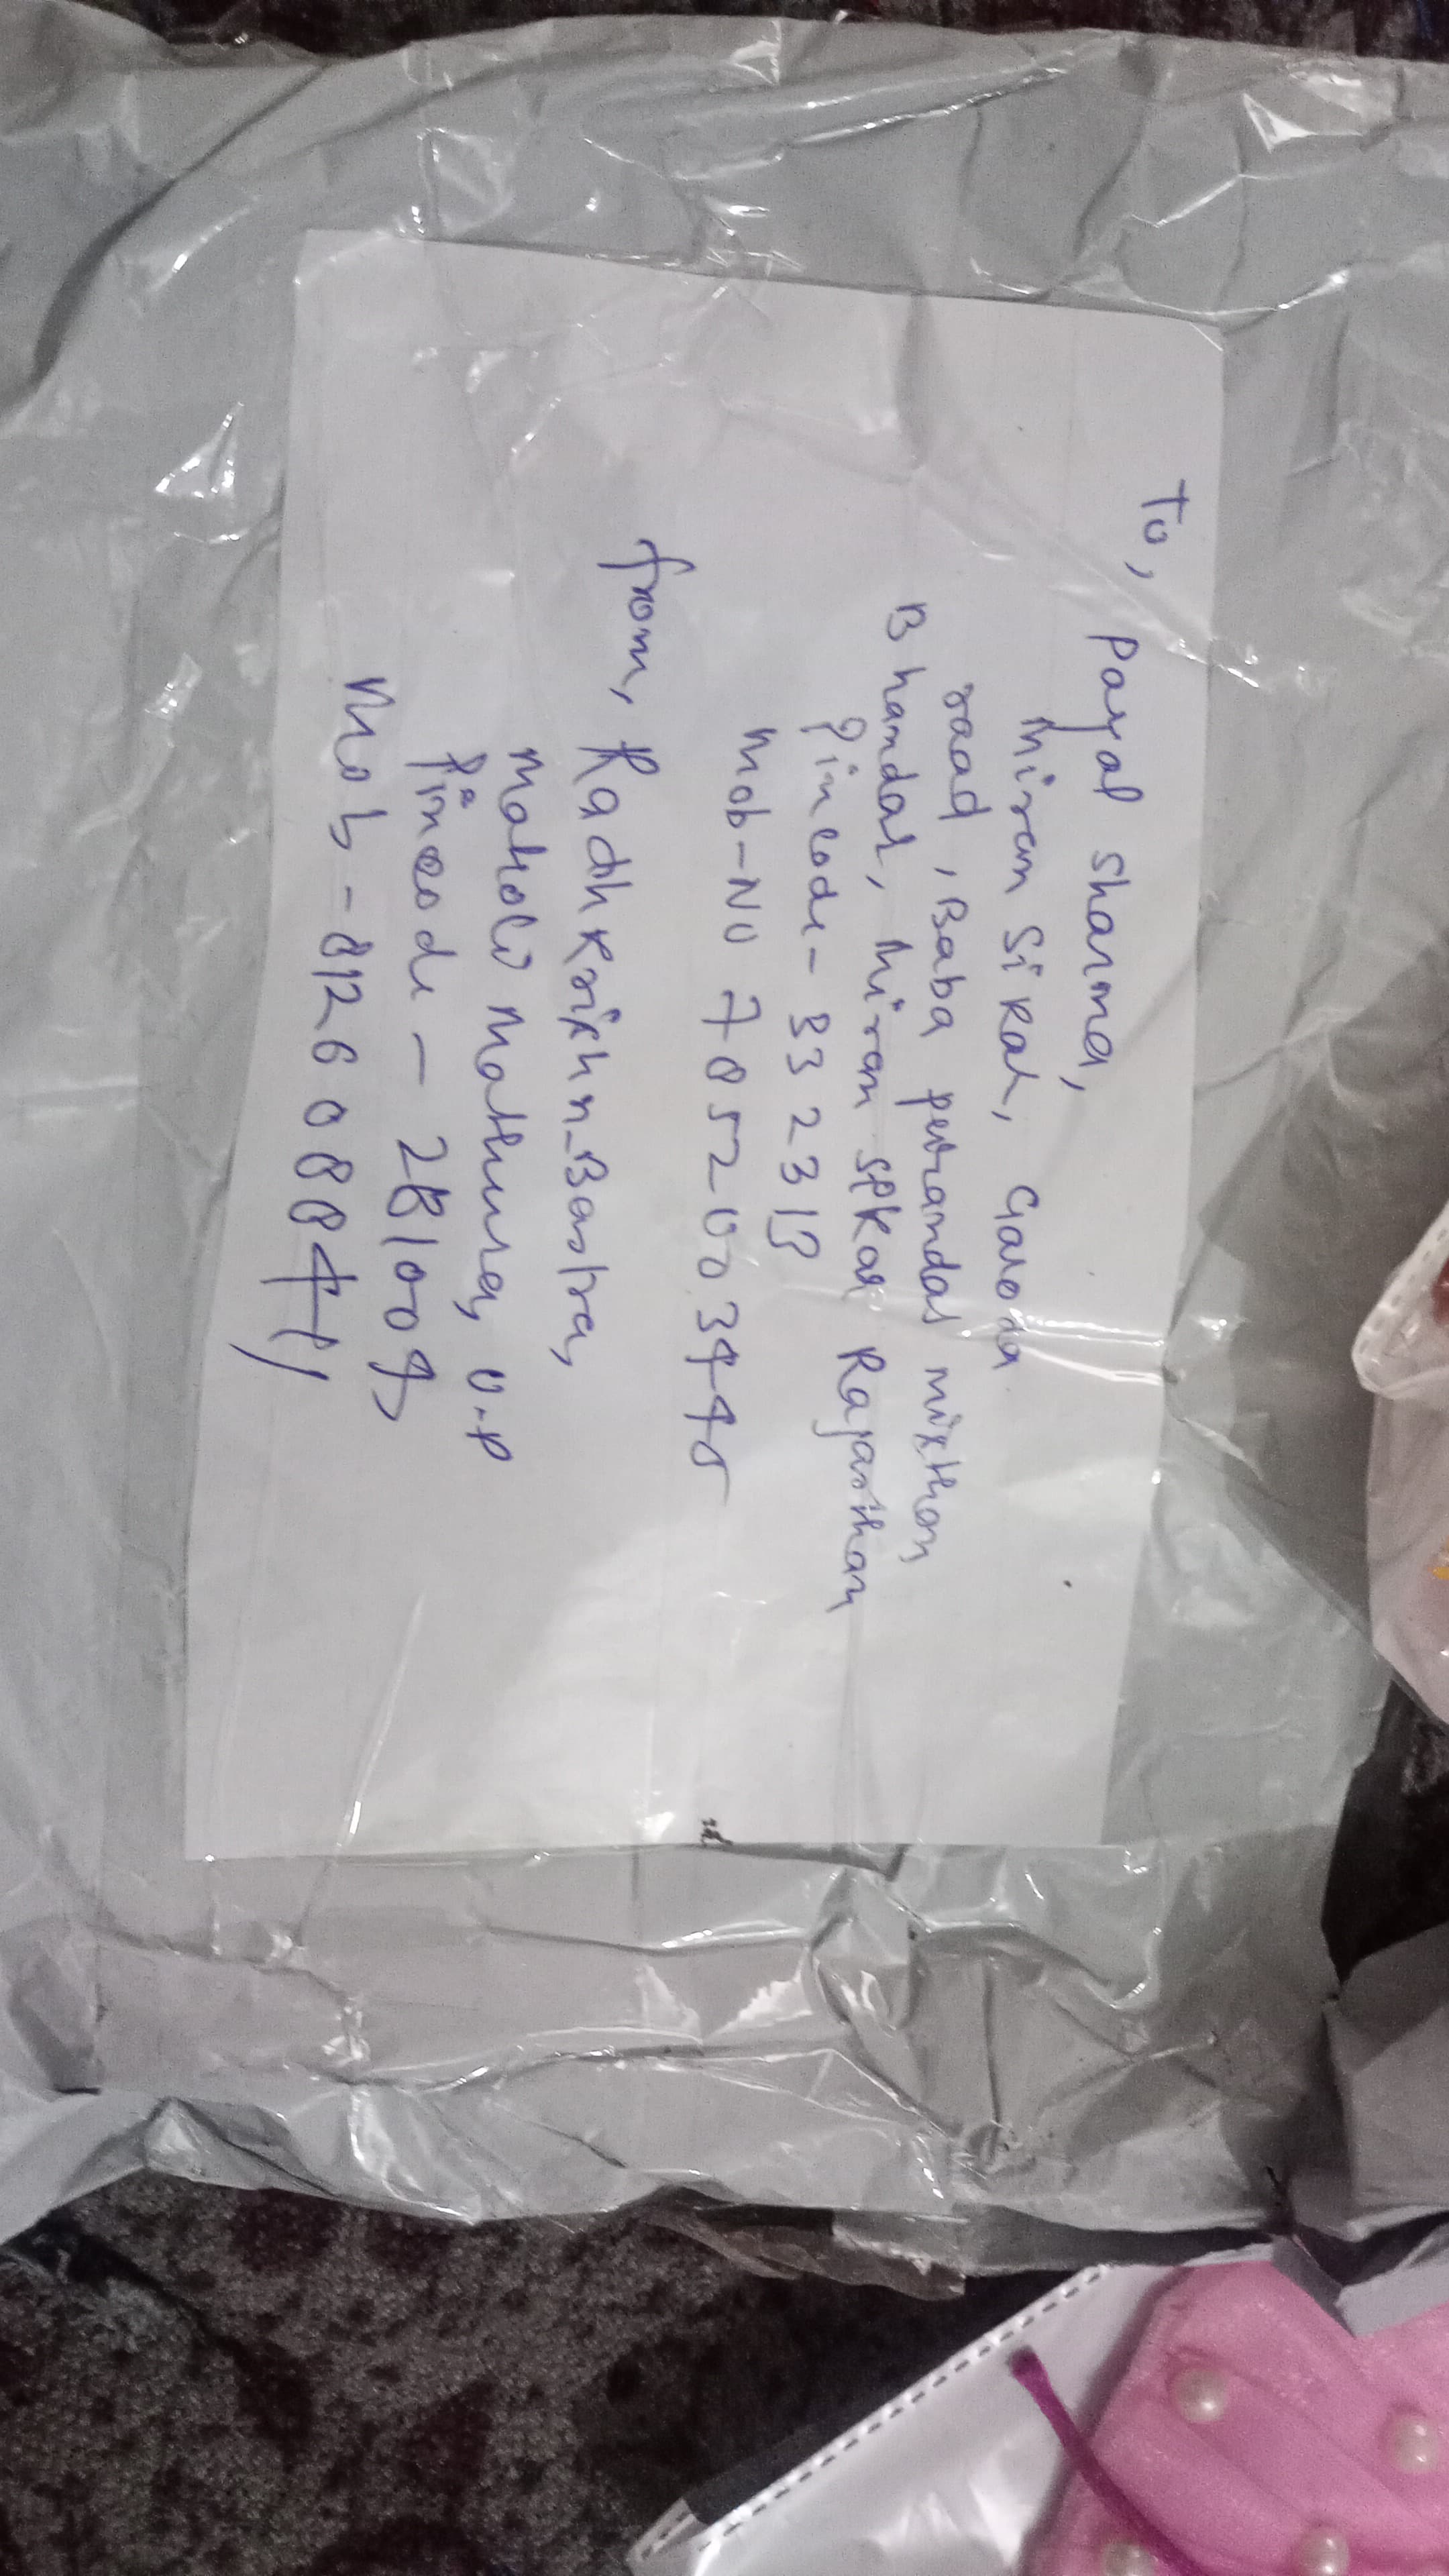 To,
Payal Sharma,
Miran Sikar, Garoda
road, Baba perramdas misthan
Bhandar, Miran Sikar Rajasthan
Pincode - 332315
Mob-No 7852003440
from, Radhkrishn-Bastra,
Maholi Mathura, U.P
Pincode - 281004,
Mob - 8126088041